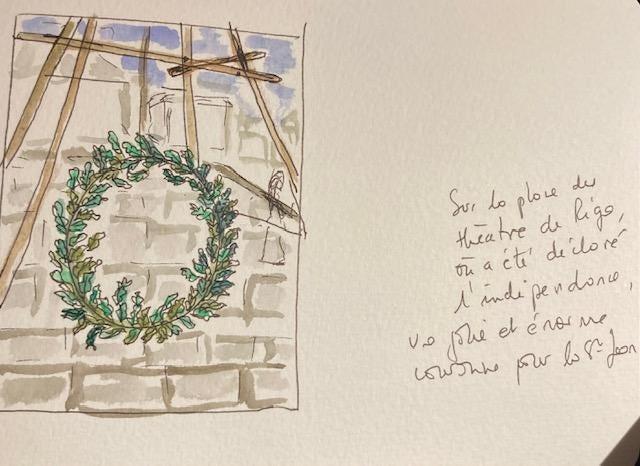 Sur la place du
théâtre de Riga,
où a été déclaré
l'indépendance,
une jolie et énorme
couronne pour la St Jean